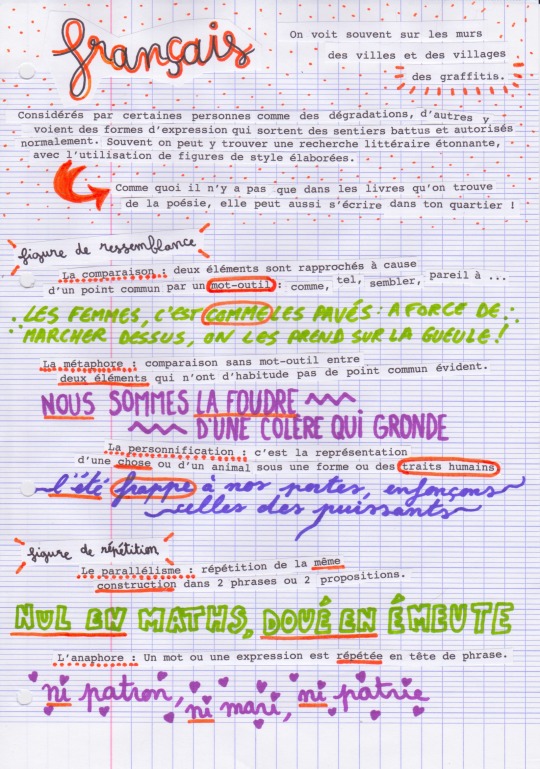 français
On voit souvent sur les murs
des villes et des villages
des graffitis.
Considérés par certaines personnes comme des dégradations, d'autres y
voient des formes d'expression qui sortent des sentiers battus et autorisés
normalement. Souvent on peut y trouver une recherche littéraire étonnante,
avec l'utilisation de figures de style élaborées.
Comme quoi il n'y a pas que dans les livres qu'on trouve
de la poésie, elle peut aussi s'écrire dans ton quartier !
figure de ressemblance
La comparaison : deux éléments sont rapprochés à cause
d'un point commun par un mot-outil : comme, tel, sembler, pareil à ...
LES FEMMES, C'EST COMME LES PAVÉS : A FORCE DE
MARCHER DESSUS, ON LES PREND SUR LA GUEULE !
La métaphore : comparaison sans mot-outil entre
deux éléments qui n'ont d'habitude pas de point commun évident.
NOUS SOMMES LA FOUDRE
D'UNE COLÈRE QUI GRONDE
La personnification : c'est la représentation
d'une chose ou d'un animal sous une forme ou des traits humains
l'été frappe à nos portes, enfonçons
celles des puissants
figure de répétition
Le parallélisme : répétition de la même
construction dans 2 phrases ou 2 propositions.
NUL EN MATHS, DOUÉ EN ÉMEUTE
L'anaphore : Un mot ou une expression est répétée en tête de phrase.
ni patron, ni mari, ni patrie